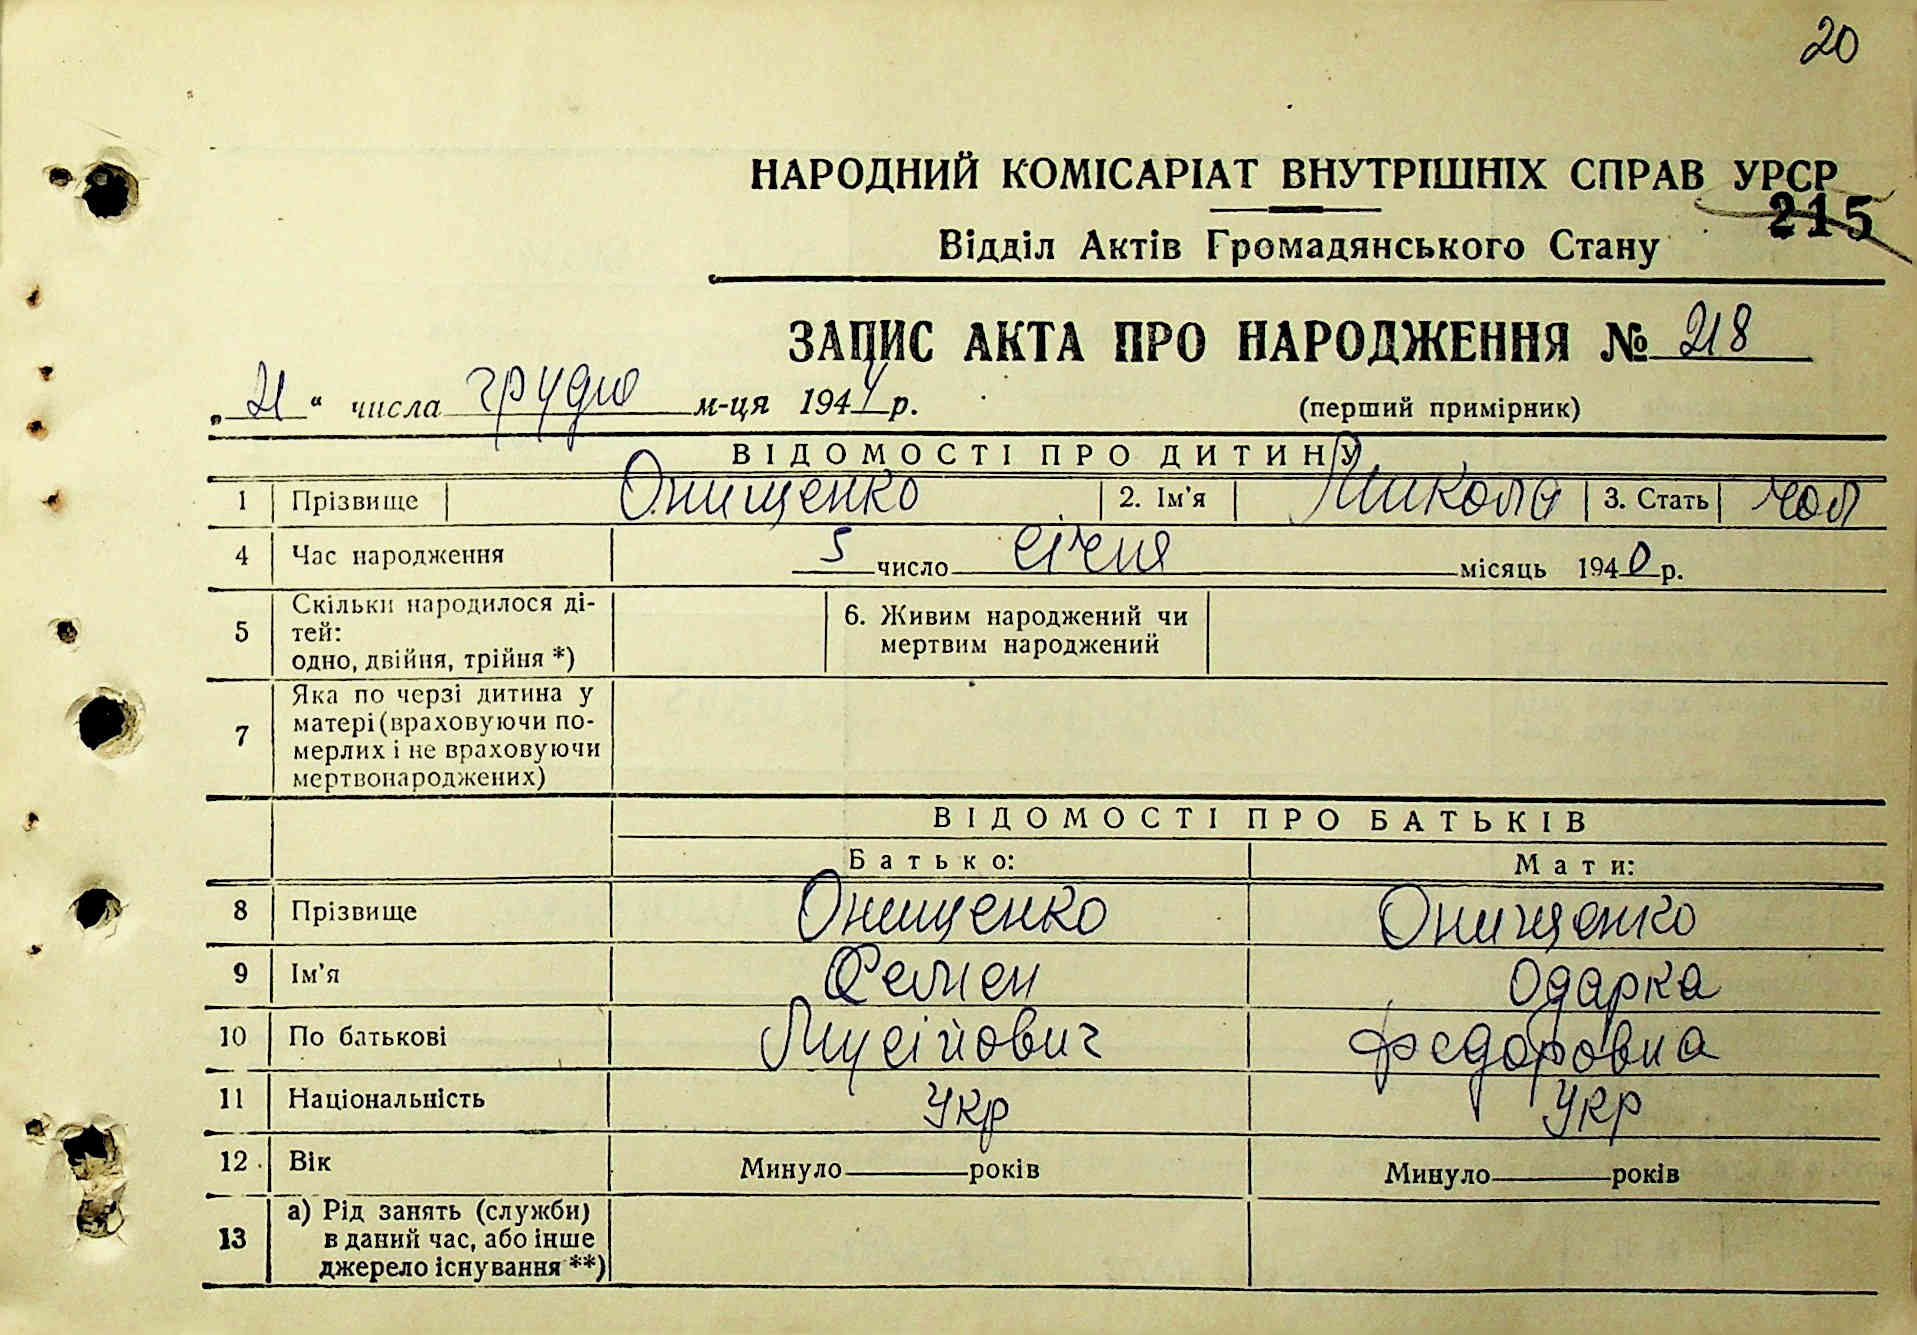 20
НАРОДНИЙ КОМІСАРІАТ ВНУТРІШНІХ СПРАВ УРСР
215
Відділ Актів Громадянського Стану
ЗАПИС АКТА ПРО НАРОДЖЕННЯ № 218
„21“ числа грудня м-ця 1944 р.
(перший примірник)
ВІДОМОСТІ ПРО ДИТИНУ
1 Прізвище Онищенко 2. Ім'я Микола 3. Стать чол
4 Час народження 5 число січня місяць 1940 р.
5 Скільки народилося ді-
тей:
одно, двійня, трійня *)
6. Живим народжений чи
мертвим народжений
7 Яка по черзі дитина у
матері (враховуючи по-
мерлих і не враховуючи
мертвонароджених)
ВІДОМОСТІ ПРО БАТЬКІВ
Батько: Мати:
8 Прізвище Онищенко Онищенко
9 Ім'я Семен Одарка
10 По батькові Мусійович Федоровна
11 Національність Укр Укр
12 Вік Минуло років Минуло років
13 а) Рід занять (служби)
в даний час, або інше
джерело існування **)